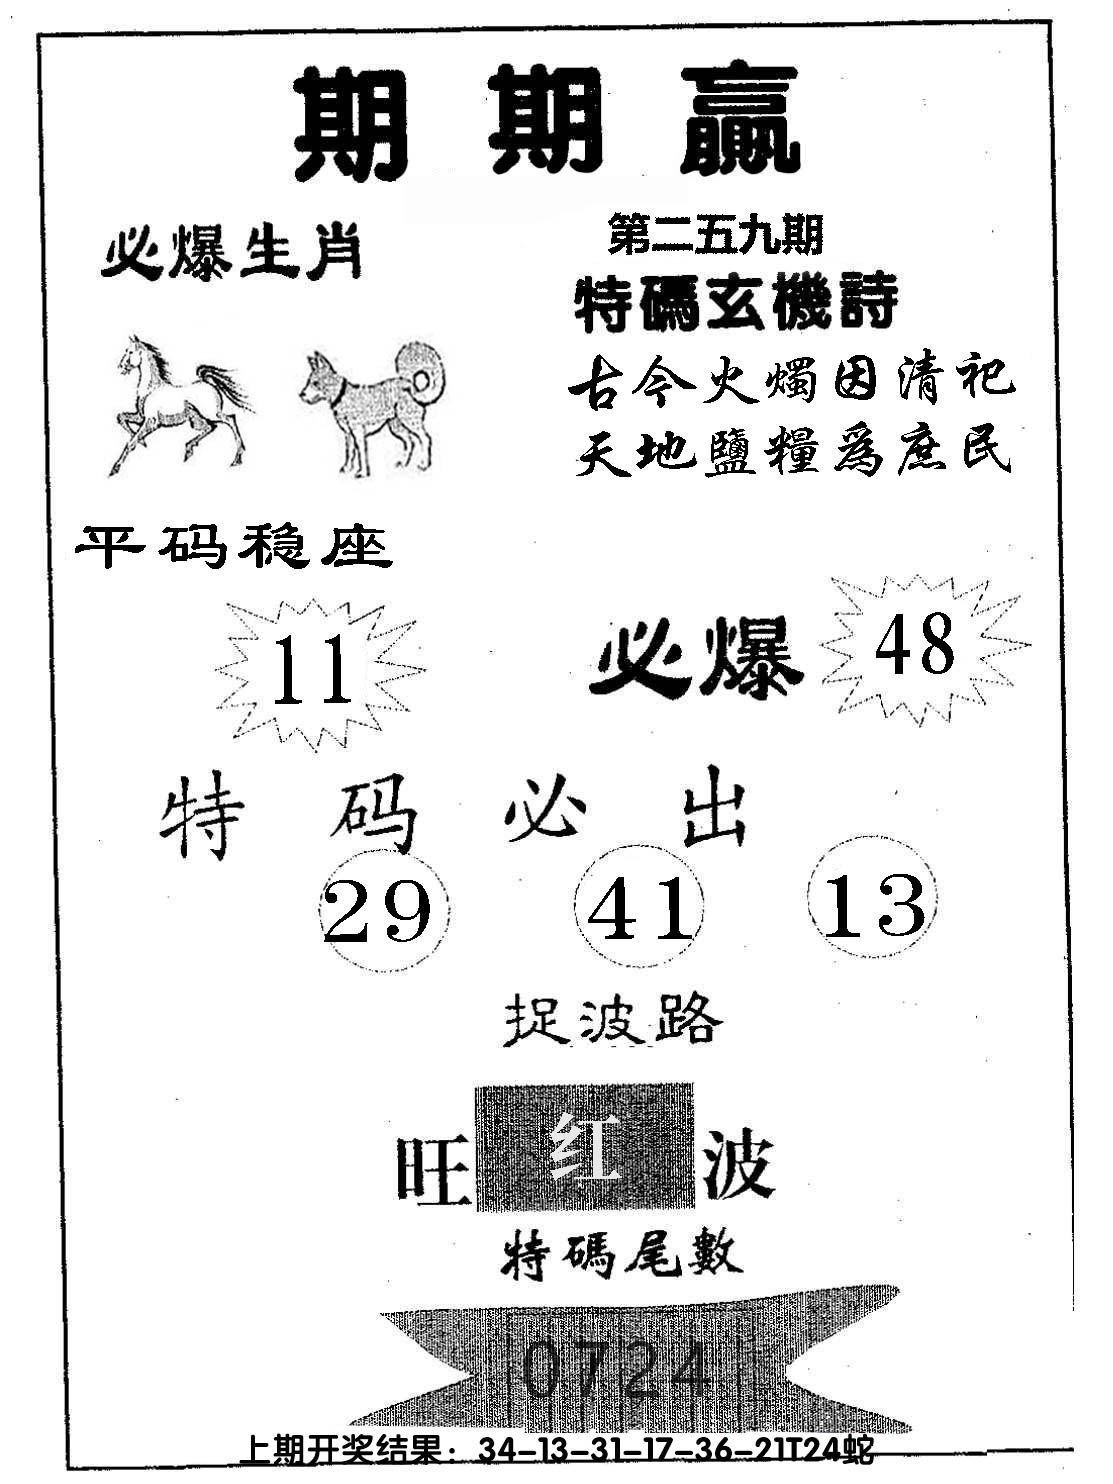 期期赢
必爆生肖
第二五九期
特碼玄機詩
古今火燭因清祀
天地鹽糧爲庶民
平码稳座
11
必爆
48
特码必出
29
41
13
捉波路
旺红波
特碼尾數
0724
上期开奖结果：34-13-31-17-36-21T24蛇